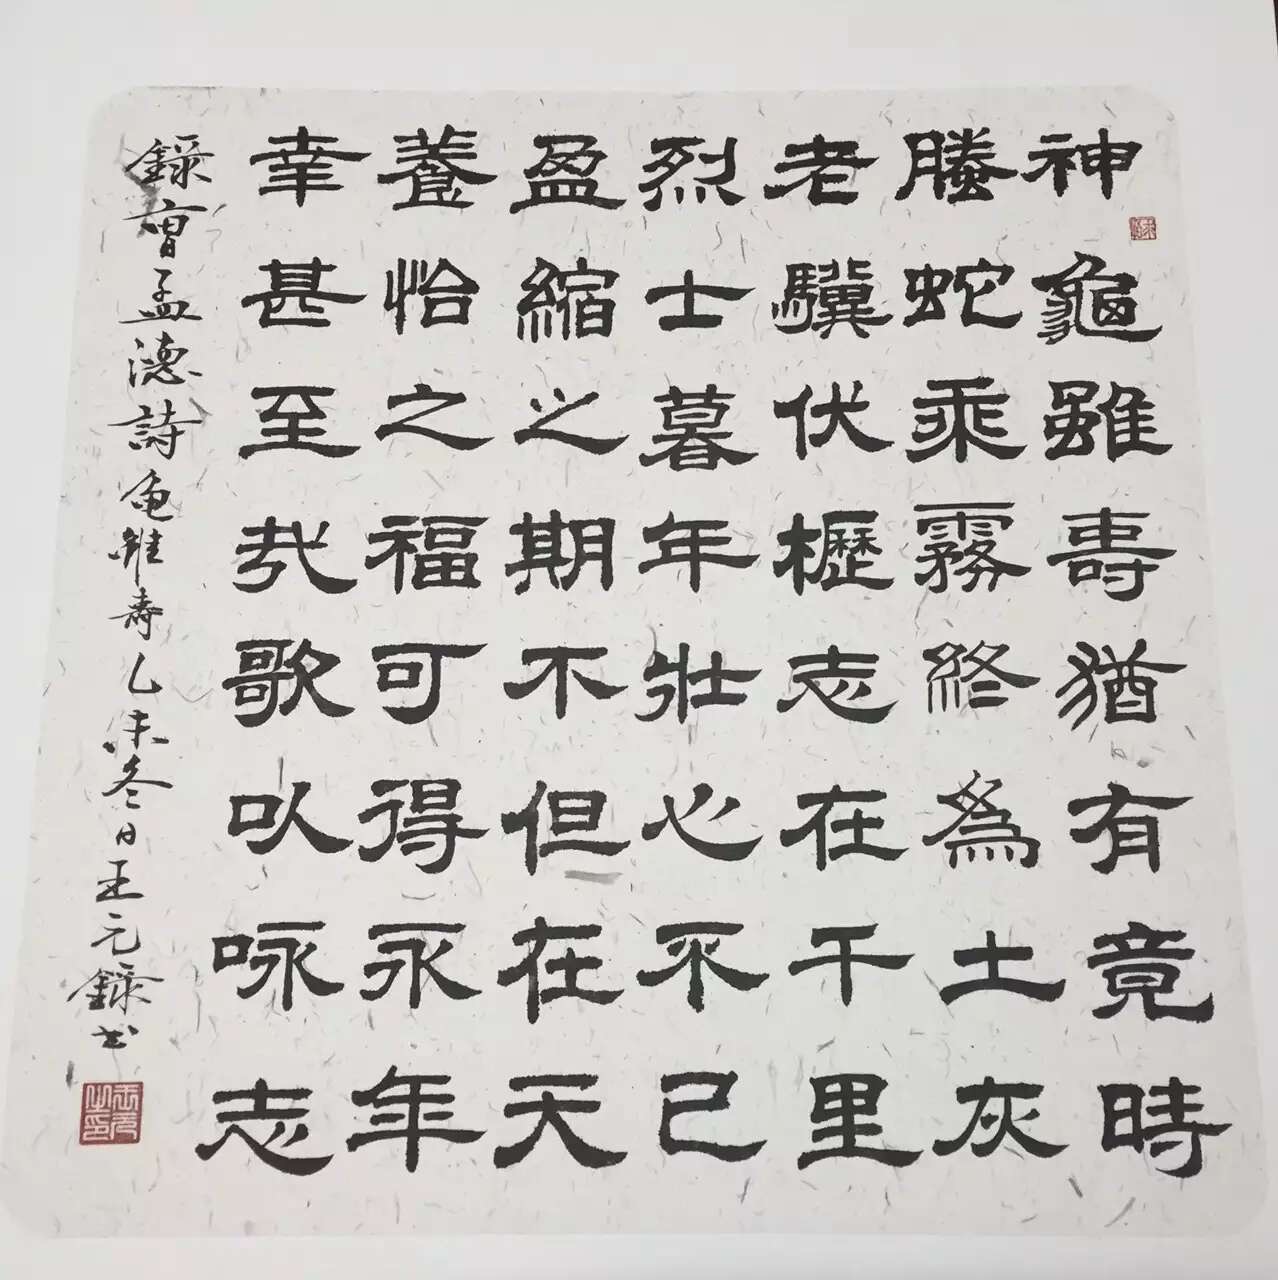 神龜雖壽猶有竟時
螣蛇乘霧終爲土灰
老驥伏櫪志在千里
烈士暮年壯心不已
盈縮之期不但在天
養怡之福可得永年
幸甚至哉歌以咏志
錄曹孟德詩龜雖壽乙未冬日王元錄书